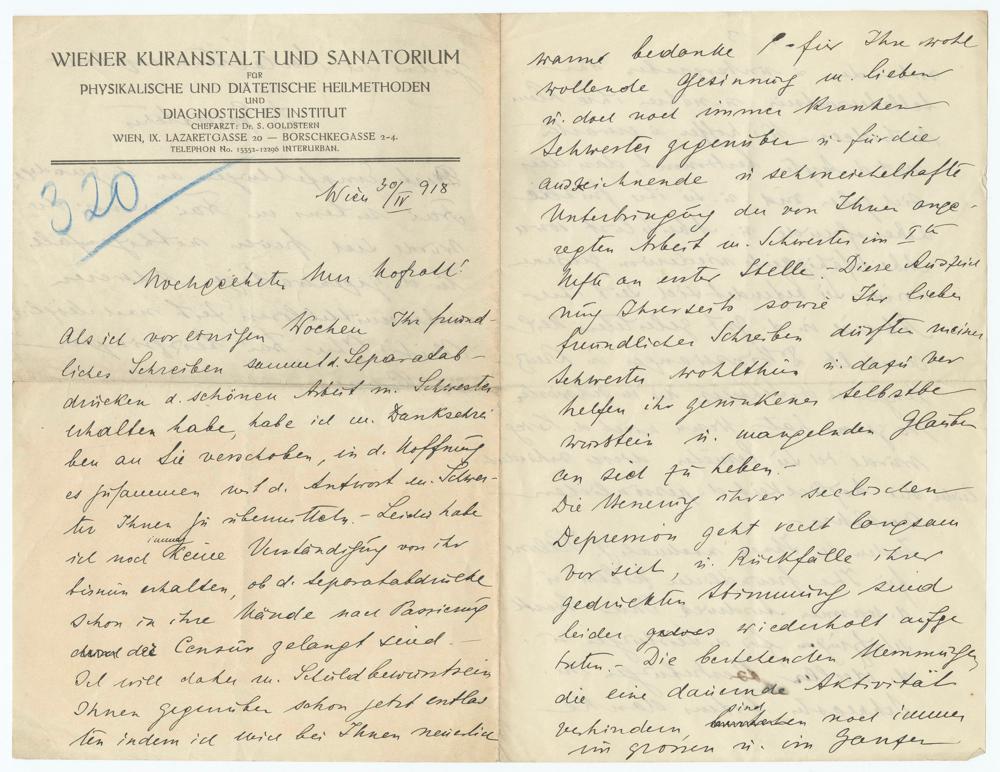 WIENER KURANSTALT UND SANATORIUM
FÜR
PHYSIKALISCHE UND DIÄTETISCHE HEILMETHODEN
UND
DIAGNOSTISCHES INSTITUT
CHEFARZT: Dr. S. GOLDSTERN
WIEN, IX. LAZARETGASSE 20 — BORSCHKEGASSE 2-4.
TELEPHON No. 15352-12296 INTERURBAN.
320
Wien 30/IV 918
Hochgeehrter Herr Hofrath!
Als ich vor einigen Wochen Ihr freund-
liches Schreiben sammt d. Separatab-
drücken d. schönen Arbeit m. Schwester
erhalten habe, habe ich m. Dankschrei
ben an Sie verschoben, in d. Hoffnung
es zusammen mit d. Antwort m. Schwes-
ter Ihnen zu übermitteln. – Leider habe
ich noch immer keine Verständigung von ihr
bisnun erhalten, ob d. Separatabdrücke
schon in ihre Hände nach Passierung
der Censur gelangt sind. –
Ich will daher m. Schuldbewusstsein
Ihnen gegenüber schon jetzt entlas
ten indem ich mich bei Ihnen neuerlich
warme bedanke für Ihre wohl
wollende Gesinnung m. lieben
u. doch noch immer kranken
Schwester gegenüber u. für die
auszeichnende u schmeichelhafte
Unterbringung der von Ihnen ange-
regten Arbeit m. Schwester im I ten
Hefte an erster Stelle. – Diese Auszeich
nung Ihrerseits sowie Ihr lieber
freundlicher Schreiben dürften meiner
Schwester wohlthun u. dazu ver
helfen ihr gesunkenes Selbstbe
wusstsein u. mangelnden Glauben
an sich zu heben. –
Die Genesung ihrer seelischen
Depression geht recht langsam
vor sich, u. Rückfälle ihrer
gedrückten Stimmung sind
leider wiederholt aufge
treten. – Die bestehenden Hemmungen
die eine dauernde Aktivität
verhindern sind noch immer
im grossen u. im Ganzen